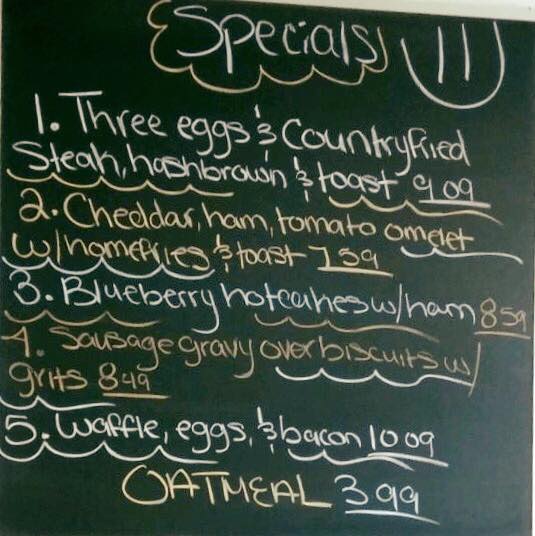 Specials
1. Three eggs & Countryfried
Steak, hashbrown & toast 9.09
2. Cheddar, ham, tomato omelet
w/homefries & toast 7.59
3. Blueberry hotcakes w/ham 859
4. Sausage gravy over biscuits w/
grits 849
5. Waffle, eggs, & bacon 10 09
OATMEAL 3 99